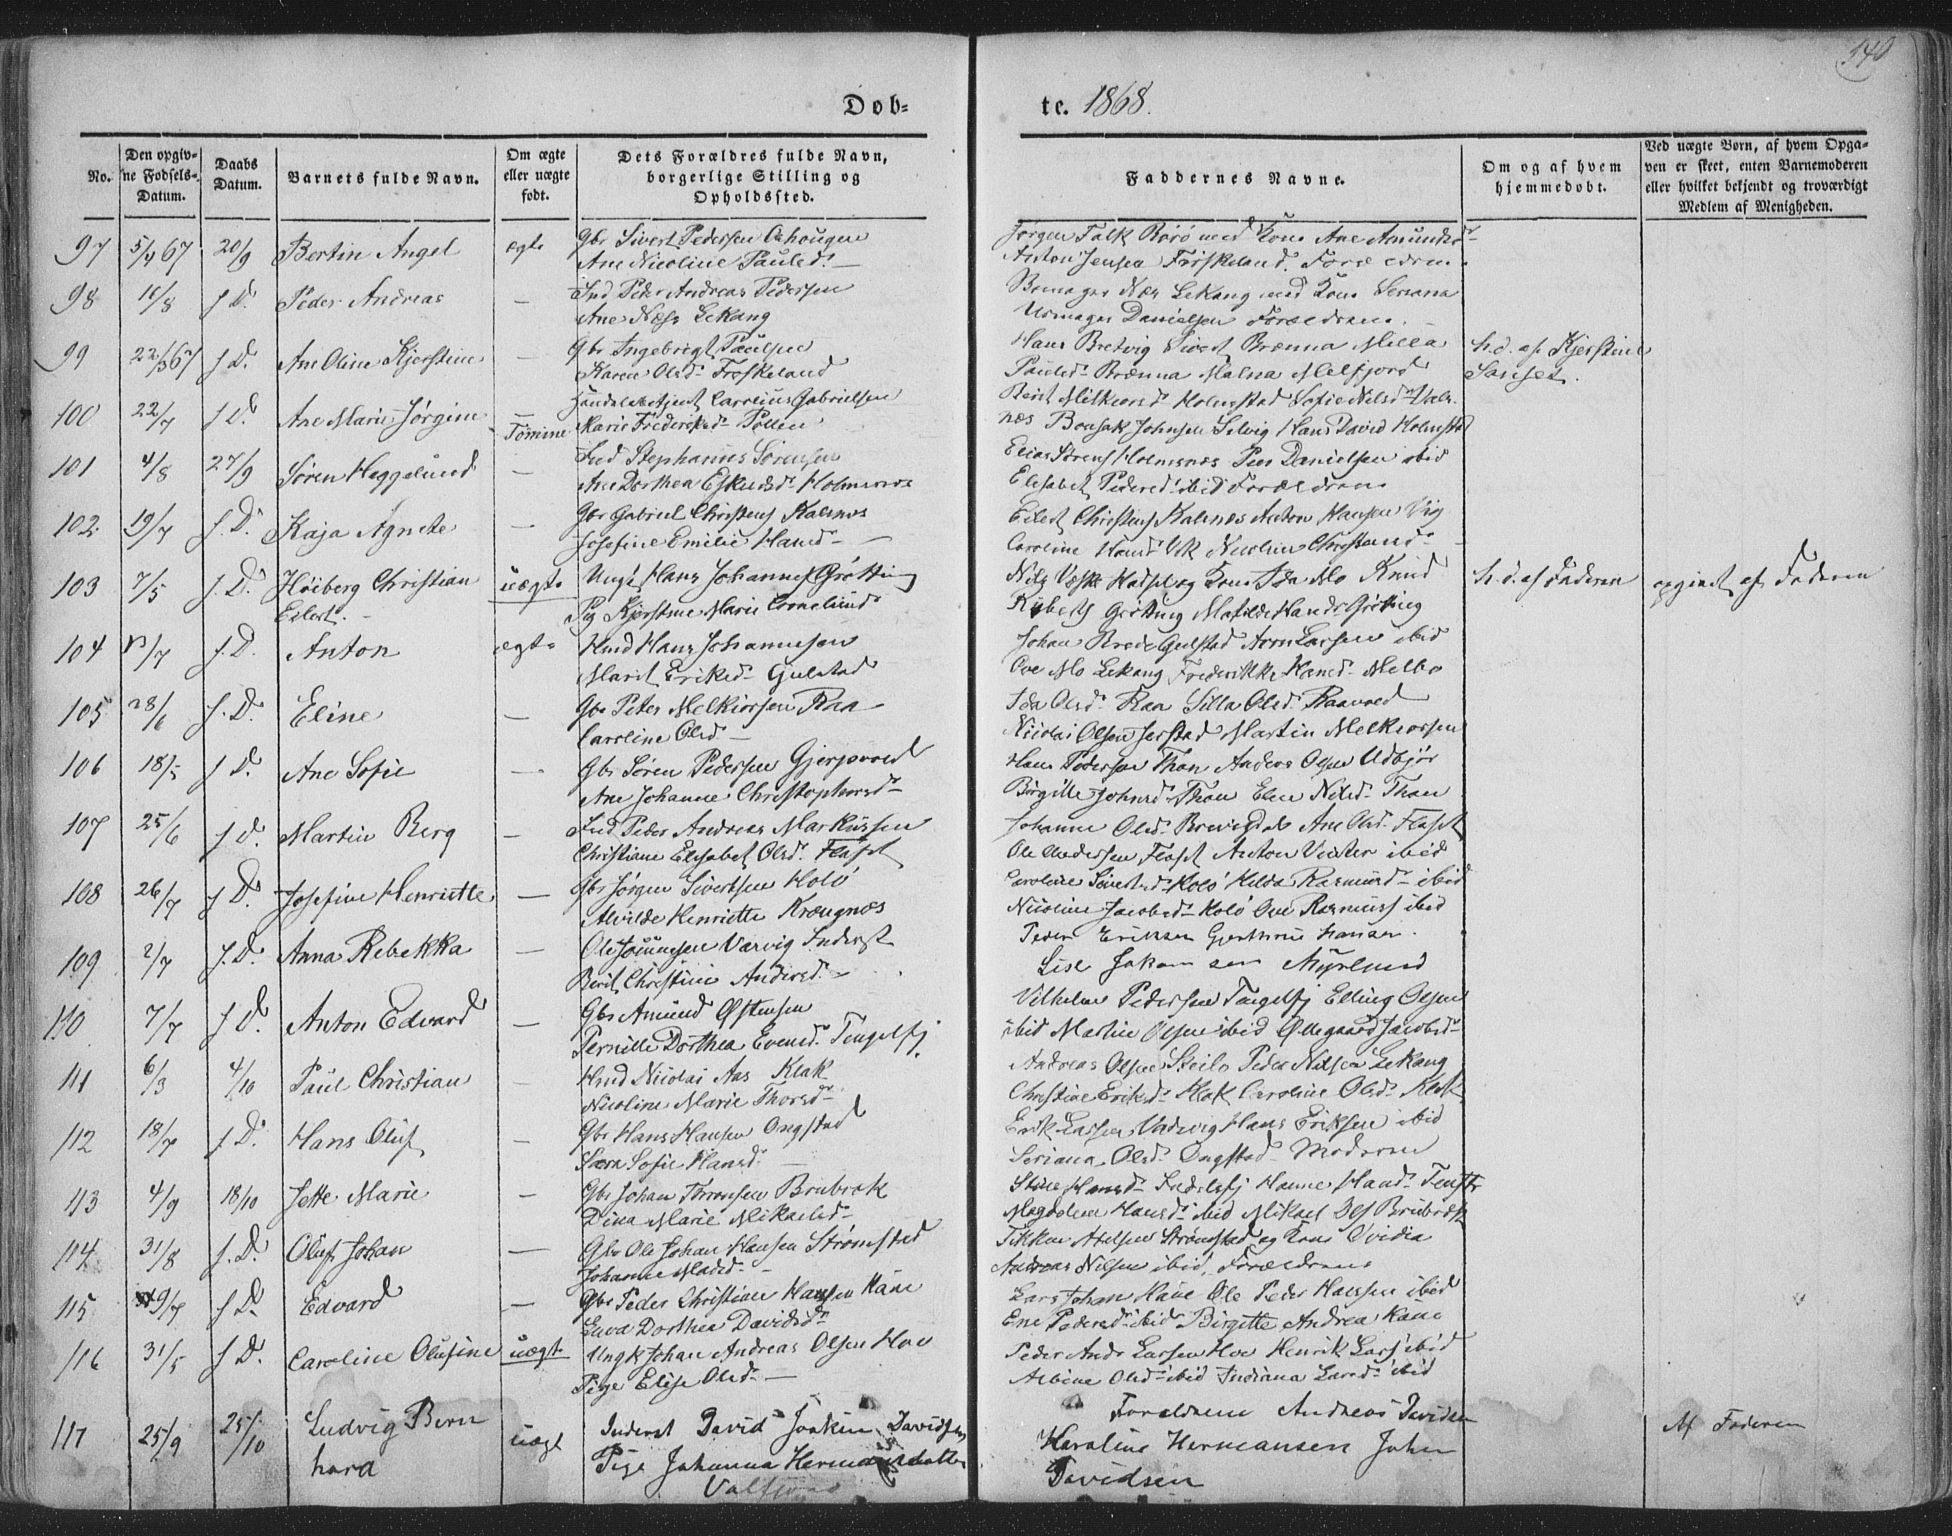 140
Dob=
te. 1868.
No.
Den opgiv=
ne Fødsels=
Datum.
Daabs
Datum.
Barnets fulde Navn.
Om ægte
eller uægte
født.
Dets Forældres fulde Navn,
borgerlige Stilling og
Opholdssted.
Faddernes Navne.
Om og af hvem
hjemmedøbt.
Ved uægte Børn, af hvem Opga=
ven er skeet, enten Barnemoderen
eller hvilket bekjendt og troværdigt
Medlem af Menigheden.
97 5/4 67 20/9 Bertin Angel ægte Gbr Sivert Pedersen
Ane Nicoline Paulsd. —
Jørgen Falk Rørø med Kone Ane Amundsdr
Anton Jensen Frøskeland. Forældrene.
98 11/8 s. D. Peder Andreas — Ind Peder Andreas Pedersen
Ane Næss Lekang
Næs Lekang med Kone Seriana
Danielsen Forældrene.
99 22/3 67 s. D. Ane Oline Kjerstine — Gbr Ingebrigt Paulsen
Karen Olsd. Frøskeland
Hans Bretvig Sivert Brænna Milla
Paulsd. Brænna Malna Melfjord
h. d. af Kjerstine
Jansen.
100 22/7 s. D. Ane Marie Jørgine — Tømine Handelsbetjent Carolius Gabrielsen
Marie Fredriksd. Pollen
Holmstad Sofie Nilsd. Vals-
næs Bonsak Johnsen Selvig Hans David Holmstad
101 4/8 27/9 Søren Heggelund — Ind Stephanus Sørensen
Ane Dorthea Holmsnæs
Elias Sørens Holmsnæs Peer Danielsen ibid
Elisabet Pedersd. ibid Forældrene
102 19/7 s. D. Kaja Agnete — Gbr Gabriel Christens Kalsnæs
Josefine Emilie Hansd. —
Eilert Christens Kalsnæs Anton Hansen Vig
Caroline Hansd. Vik
103 7/5 s. D. Høiberg Christian
Eilert. uægte Ungk Hans Johannes Grøtting
Pig Kjerstine Marie Corneliusd.
Kone Mo Knud
Grøtting Matilde Hansd. Grøtting
h. d. af Faderen opgivet af Faderen
104 /7 s. D. Anton ægte Hmd Hans Johannesen
Marit Eriksd. Gulstad
Johan Brede Gulstad Larsen ibid
Ove Mo Lekang Frederikke Hansd. Melbo
105 28/6 s. D. Eline — Gbr Peter Melkiorsen Raa
Caroline Olsd. —
Ida Olsd. Raa Silla Olsd. Raavold
Nicolai Olsen Jerstad Martin Melkiorsen
106 18/5 s. D. Ane Sofie — Gbr Søren Pedersen Gjerpvold
Ane Johanne Christophersd. —
Hans Pedersen Thon Anders Olsen Udbjør
Birgitte Johnsd. Thon Elen Nilsd. Thon
107 25/6 s. D. Martin Berg — Ind Peder Andreas Markussen
Christiane Elisabet Olsd. Fløset
Johanne Olsd. Breivigdal Ane Olsd. Fløset
Ole Andersen Fløset Anton Vinter ibid
108 26/7 s. D. Josefine Henriette — Gbr Jørgen Sivertsen Holø
Alvilde Henriette Krængnæs
Caroline Sivertsd. Holø Hilda Rasmusd. ibid
Nicoline Jacobsd. Holø Ove Rasmuss ibid
109 2/7 s. D. Anna Rebekka — Ole Varvig Inderst
Berit Christine Andersd. —
Peder Eriksen Gjertrine Hansen.
Lise Jakobsen Myrlund
110 7/7 s. D. Anton Edvard — Gbr Amund Østensen
Pernille Dorthea Evensd. Tengelfj.
Vilhelm Pedersen Tengelfj Elling Olsen
ibid Martin Olsen ibid Øllegaard Jacobsd.
111 6/3 4/10 Paul Christian — Hmd Nicolai Aas Klak
Nicoline Marie Thorsd.
Andreas Olsen Steilo Peder Nilsen Lekang
Christine Eriksd. Klak Caroline Olsd. Klak
112 18/7 s. D. Hans Oluf — Gbr Hans Hansen Ongstad
Sara Sofie Hansd. —
Erik Larsen Hans Eriksen ibid
Seriana Olsd. Ongstad Moderen
113 4/9 18/10 Jette Marie — Gbr Johan Brubrok
Dina Marie Mikaelsd.
Stine Hansd. Hanne Hansd.
Magdalene Hansd. ibid Mikael Ols Brubrok
114 31/8 s. D. Oluf Johan — Gbr Ole Johan Hansen Strømstad
Johanne Madsd. —
Abelsen Strømstad og Kone Ovidia
Andreas Nilsen ibid, Forældrene
115 9/7 s. D. Edvard — Gbr Peder Christian Hansen Kåne
Dorthea Davidsd.
Lars Johan Kåne Ole Peder Hansen ibid
Ene Pedersd. ibid Birgitte Andrea Kåne
116 31/5 s. D. Caroline Olufine uægte Ungk Johan Andreas Olsen Hov
Pige Elise Olsd. —
Peder Andr Larsen Hov Henrik Lars ibid
Albine Olsd. ibid Indiana Larsd. ibid
117 25/9 25/10 Ludvig Bern
hard uægt Inderst David Joakim Davidsen
Pige Johanna Hermansdatter
Valfjord
Forældrene Andreas Davidsen
Karoline Hermansen John
Davidsen
Af Faderen